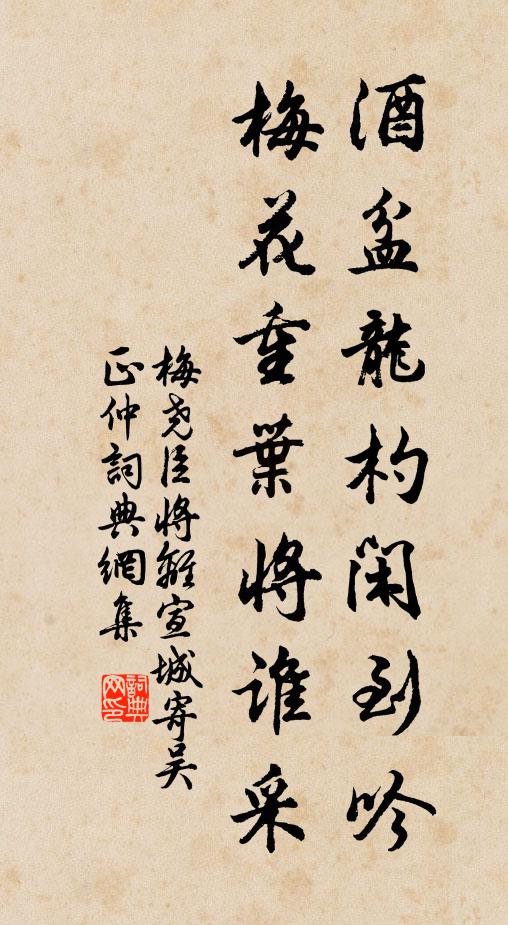 酒盆龍杓閑到吟
梅花重葉將誰采
梅堯臣將離宣城寄吳
正仲詞典網集
詞典
网印